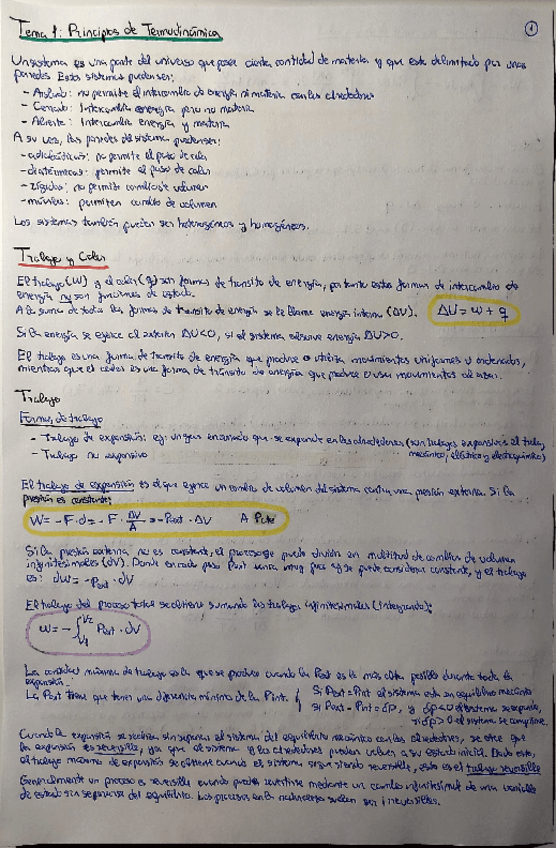 Tema 1: Principios de Termodinámica
1
Un sistema es una parte del universo que posee cierta cantidad de materia y que está delimitado por unas
paredes. Estos sistemas pueden ser:
- Aislado: no permite el intercambio de energía ni materia con los alrededores
- Cerrado: Intercambia energía pero no materia
- Abierto: Intercambia energía y materia
A su vez, las paredes del sistema pueden ser:
- adiabáticas: no permite el paso de calor
- diatérmicas: permite el paso de calor
- rígidas: no permite cambios de volumen
- móviles: permiten cambio de volumen
Los sistemas también pueden ser heterogéneos y homogéneos.
Trabajo y Calor
El trabajo (W) y el calor (q) son formas de transito de energía, por tanto estas formas de intercambio de
energía no son funciones de estado.
A la suma de todas las formas de transito de energía se le llama energía interna (ΔU). ΔU = w + q
Si la energía se ejerce al exterior ΔU<0, si el sistema absorve energía ΔU>0.
El trabajo es una forma de transito de energía que produce o utiliza movimientos uniformes u ordenados,
mientras que el calor es una forma de tránsito de energía que produce o usa movimientos al azar.
Trabajo
Formas de trabajo
- Trabajo de expansión: ej: un gas encerrado que se expande en los alrededores (son trabajos expansivos el
- Trabajo no expansivo mecánico, eléctrico y electroquímico)
El trabajo de expansión es el que ejerce un cambio de volumen del sistema contra una presión externa. Si la
presión es constante:
W = -F·d = -F · ΔV/A = -Pext · ΔV A Pcte
Si la presión externa no es constante, el proceso se puede dividir en multitud de cambios de volumen
infinitesimales (dV). Donde en cada paso Pext varía muy poco y se puede considerar constante, y el trabajo
es: dW = -Pext · dV
El trabajo del proceso total se obtiene sumando los trabajos infinitesimales (integrando):
w = - ∫V1V2 Pext · dV
La cantidad máxima de trabajo es la que se produce cuando la Pext es la más alta posible durante toda la
expansión.
La Pext tiene que tener una diferencia mínima de la Pint. { Si Pext = Pint el sistema está en equilibrio mecánico
si Pext = Pint + dp, y dp<0 el sistema se expande,
si dp>0 el sistema se comprime.
Cuando la expansión se realiza sin separar el sistema del equilibrio mecánico con los alrededores, se dice que
la expansión es reversible, ya que el sistema y los alrededores pueden volver a su estado inicial. Dado esto,
el trabajo máximo de expansión se obtiene cuando el sistema sigue siendo reversible, esto es el trabajo reversible
Generalmente un proceso es reversible cuando puede revertirse mediante un cambio infinitesimal de una variable
de estado sin separarse del equilibrio. Los procesos en la naturaleza suelen ser irreversibles.